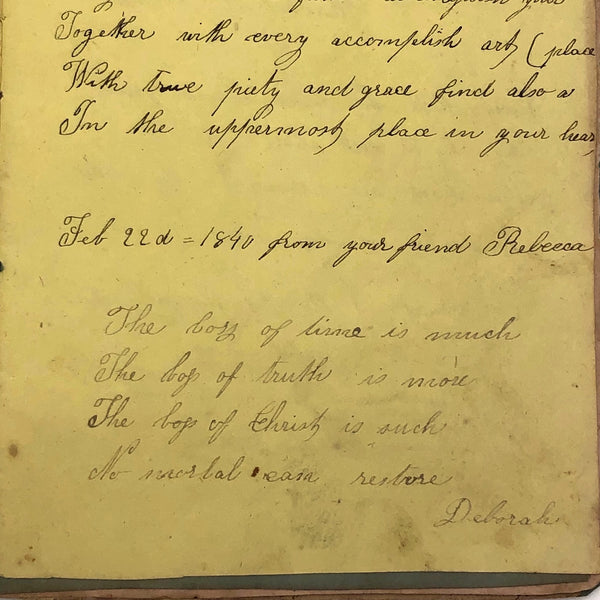 your
Together with every accomplish art (place
With true piety and grace find also a
In the uppermost place in your hear
Feb 22d = 1840 from your friend Rebecca
The loss of time is much
The loss of truth is more
The loss of Christ is such
No mortal can restore
Deborah